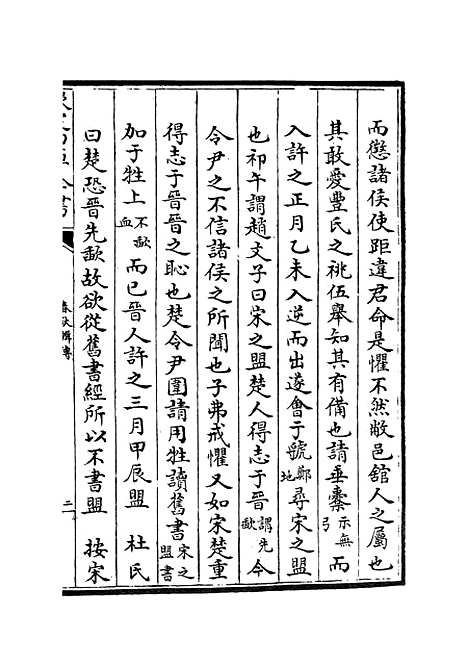 而懲諸侯使距違君命是懼不然敝邑舘人之屬也
其敢愛豐氏之祧伍舉知其有備也請垂櫜示無弓而
入許之正月乙未入逆而出遂會于虢鄭地尋宋之盟
也祁午謂趙文子曰宋之盟楚人得志于晉謂先歃今
令尹之不信諸侯之所聞也子弗戒懼又如宋楚重
得志于晉晉之恥也楚令尹圍請用牲讀舊書宋之盟書
加于牲上不歃血而已晉人許之三月甲辰盟 杜氏
曰楚恐晉先歃故欲從舊書經所以不書盟 按宋
春秋輯傳
二